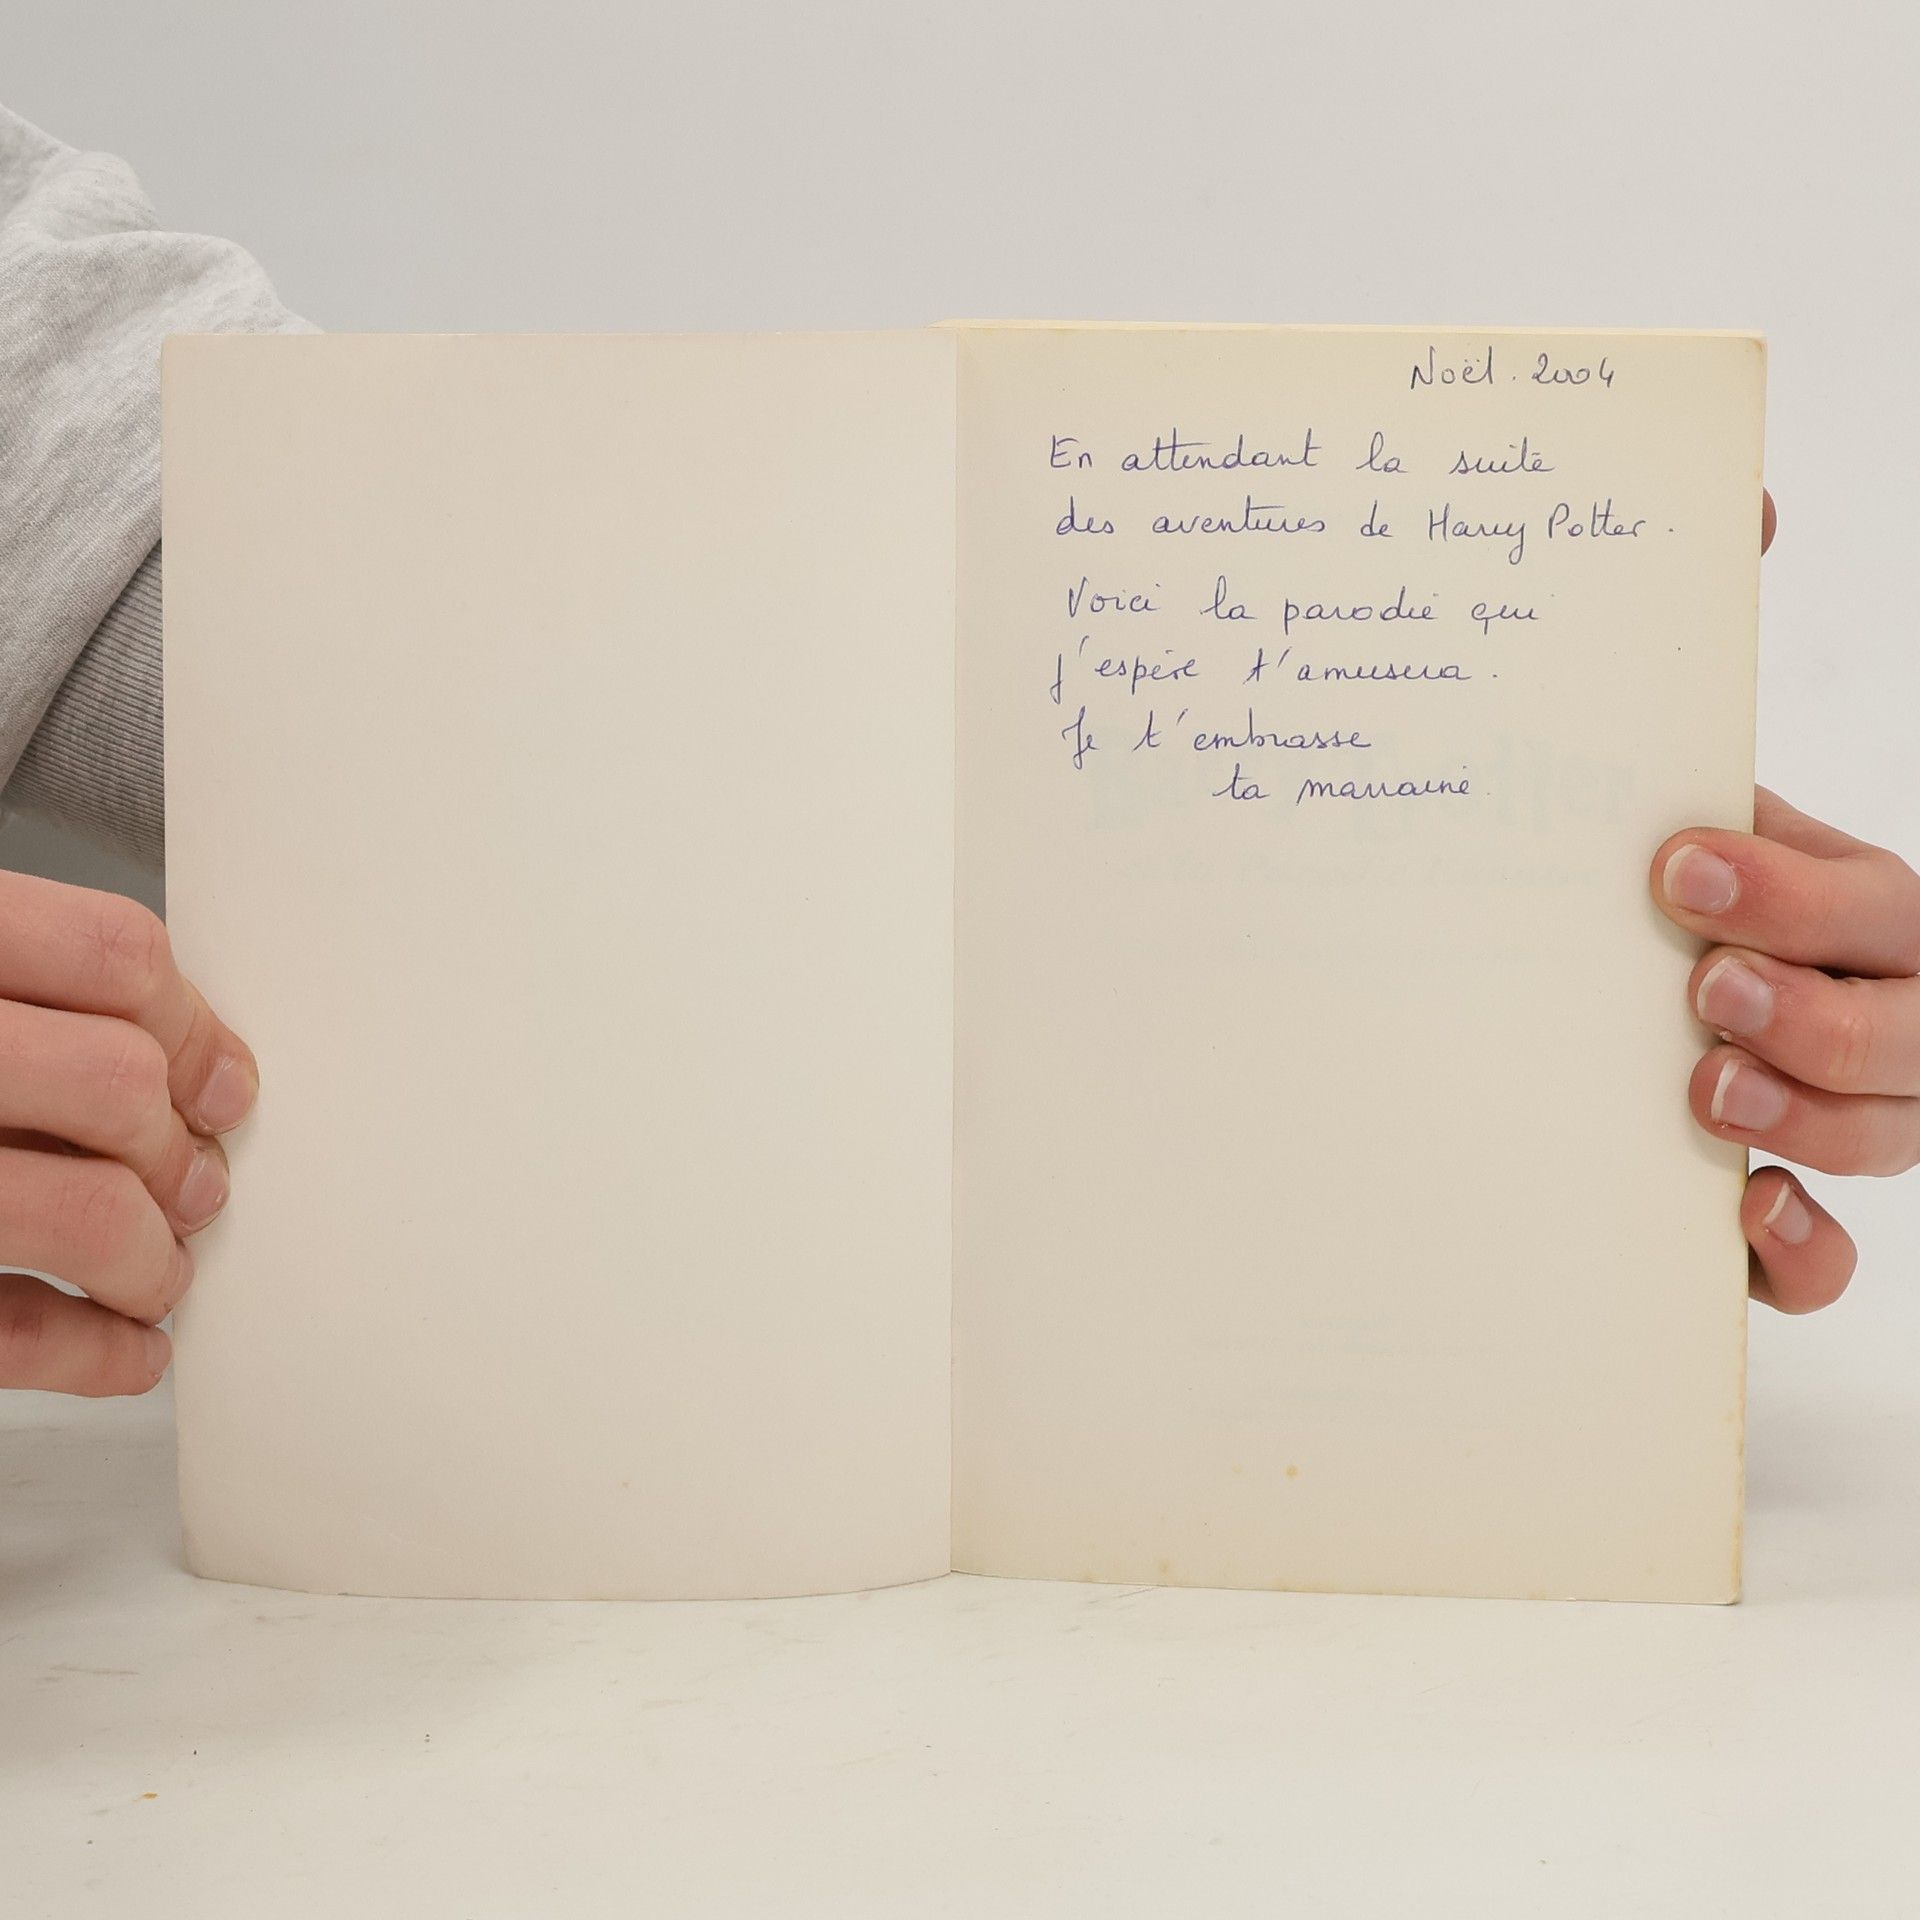 Noël. 2004
En attendant la suite
des aventures de Harry Potter.
Voici la parodie qui
j'espère t'amusera.
Je t'embrasse
ta marraine.